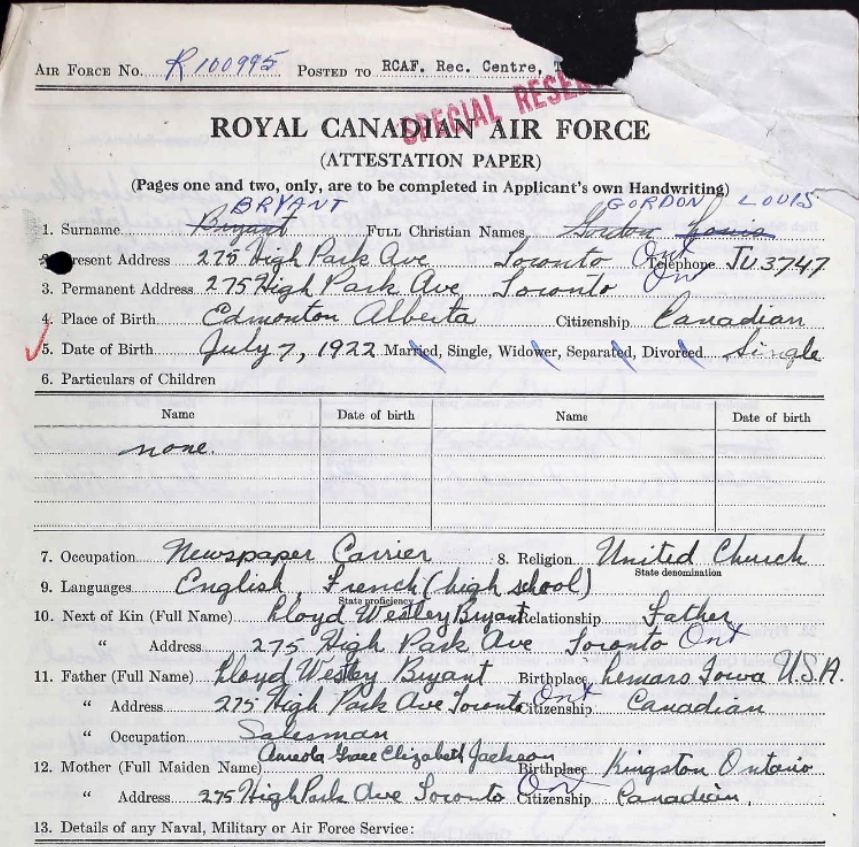 AIR FORCE No. R100995 POSTED TO RCAF. Rec. Centre,
SPECIAL RESE
ROYAL CANADIAN AIR FORCE
(ATTESTATION PAPER)
(Pages one and two, only, are to be completed in Applicant's own Handwriting)
BRYANT GORDON LOUIS
1. Surname Bryant FULL Christian Names Gordon Louis
Present Address 275 High Park Ave Toronto Ont Telephone JU 3747
3. Permanent Address 275 High Park Ave Toronto Ont
4. Place of Birth Edmonton Alberta Citizenship Canadian
5. Date of Birth July 7, 1922 Married, Single, Widower, Separated, Divorced Single
6. Particulars of Children
Name Date of birth Name Date of birth
none.
7. Occupation Newspaper Carrier 8. Religion United Church
State denomination
9. Languages English, French (high school)
State proficiency
10. Next of Kin (Full Name) Lloyd Westley Bryant Relationship Father
" Address 275 High Park Ave Toronto Ont
11. Father (Full Name) Lloyd Westley Bryant Birthplace Lemars Iowa U.S.A.
" Address 275 High Park Ave Toronto Ont Citizenship Canadian
" Occupation Salesman
12. Mother (Full Maiden Name) Grace Elizabeth Jackson Birthplace Kingston Ontario
" Address 275 High Park Ave Toronto Ont Citizenship Canadian.
13. Details of any Naval, Military or Air Force Service: